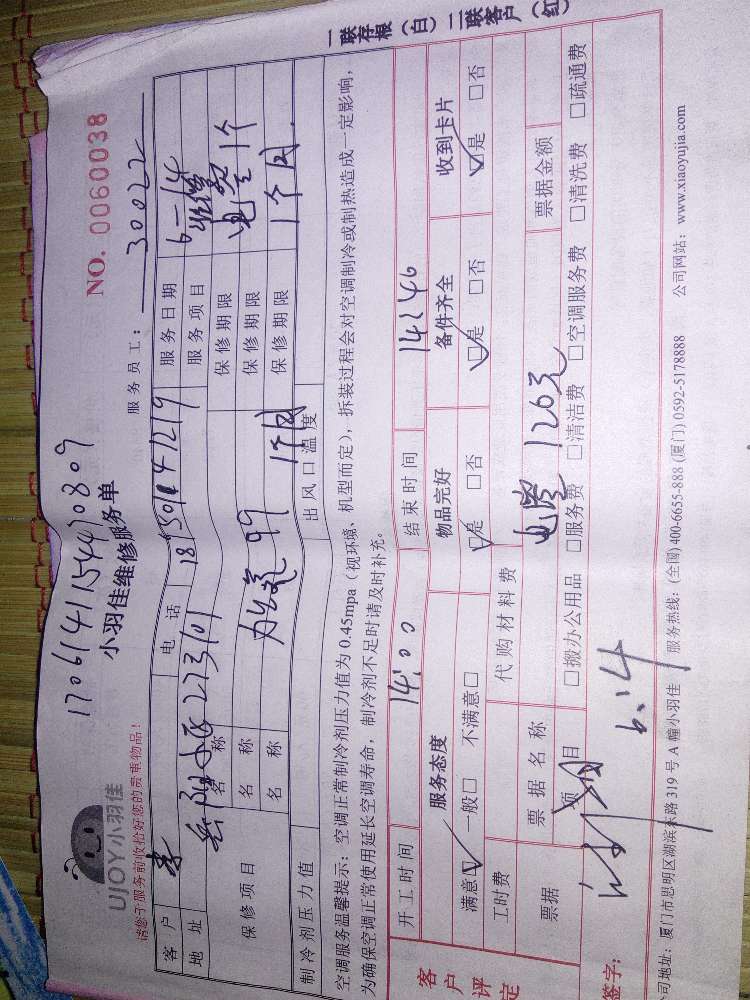 一联存根（白）二联客户（红
NO. 0060038
1706141154470809
UJOY小羽佳
小羽佳维修服务单
请您于服务前收拾好您的贵重物品！
服务员工： 30022
客户 李 电话 服务日期 6-14
地址 273/01 服务项目
保修项目 名称 保修期限 电容 1个
名称 加氨 99 保修期限
名称 保修期限 1个月
制冷剂压力值 出风口温度
空调服务温馨提示：空调正常制冷剂压力值为 0.45mpa（视环境、机型而定），拆装过程会对空调制冷或制热造成一定影响，
为确保空调正常使用延长空调寿命，制冷剂不足时请及时补充。
客户评定
开工时间 14:00 结束时间 14:46
服务态度 物品完好 备件齐全 收到卡片
满意☑ 一般□ 不满意□ ☑是 □否 ☑是 □否 ☑是 □否
工时费 代购材料费 电容 120元
票据 票据名称 票据金额
项目 □搬办公用品 □服务费 □清洁费 □空调服务费 □清洗费 □疏通费
签字： 6.14
司地址：厦门市思明区湖滨东路 319 号 A 幢小羽佳 服务热线：(全国) 400-6655-888 (厦门) 0592-5178888 公司网站：www.xiaoyujia.com